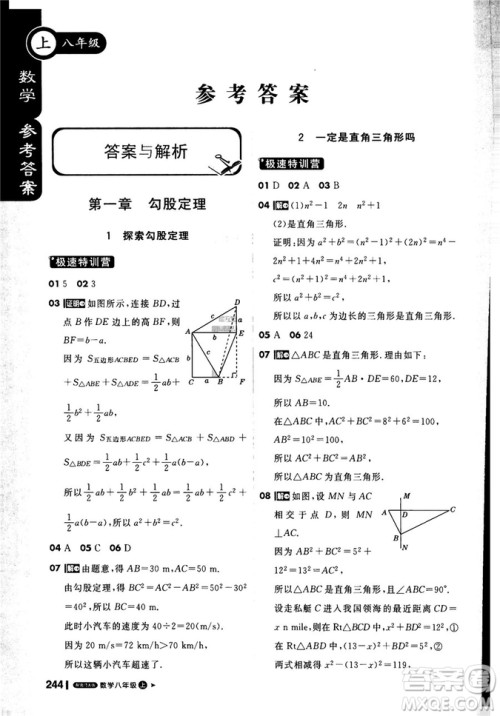 上 八年级
数学 参考答案
参考答案
答案与解析
第一章 勾股定理
1 探索勾股定理
极速特训营
01 5 02 3
03 证明 如图所示，连接 BD，过
点 B 作 DE 边上的高 BF，则
BF=b-a.
因为 S五边形ACBED=S△ACB
+S△ABE+S△ADE=1/2ab+
1/2b²+1/2ab，
又因为 S五边形ACBED=S△ACB+
S△ABD+S△BDE=1/2ab+1/2c²+
1/2a(b-a)，
所以1/2ab+1/2b²+1/2ab=1/2ab+1/2c²+
1/2a(b-a).
所以 a²+b²=c².
04 A 05 C 06 D
07 解 由题意，得 AB=50 m，AC=30 m，
由勾股定理，得 BC²+AC²=AB²，
所以 BC=40 m.
此时小汽车的速度为 40÷2=20(m/s).
因为 20 m/s=72 km/h>70 km/h，
所以这辆小汽车超速了.
2 一定是直角三角形吗
极速特训营
01 D 02 A 03 B
04 解 (1)n²-1 2n n²+1
(2)是直角三角形.
证明：因为 a²+b²=(n²-1)²+(2n)²=
n⁴-2n²+1+4n²=n⁴+2n²+1，
c²=(n²+1)²=n⁴+2n²+1，
所以 a²+b²=c².
所以以 a,b,c 为边长的三角形是直角三角形.
05 A 06 24
07 解 △ABC 是直角三角形. 理由如下：
因为 S△ABE=1/2AB·DE=60，DE=12，
所以 AB=10.
在△ABC 中，因为 AC²+BC²=8²+6²=100=
AB²，
所以△ABC 是直角三角形，且∠C=90°.
08 解 如图，设 MN 与 AC
相交于点 E，则∠BEC=90°.
因为 AB²+BC²=5²+
12²=13²=AC²，
所以△ABC 为直角三角形，且
∠ABC=90°.
因为 MN⊥CE，
所以走私艇 C 进入我国领海的最近距离是 CE.
设走私艇 C 进入我国领海的最近距离 CE 为
x n mile，则 x²+BE²=144，
(13-x)²+BE²=25，
两式相减得 x²-(13-x)²=119，
244 数学八年级 上
答案圈